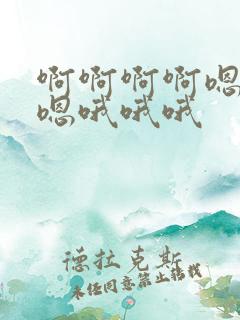 啊啊啊啊嗯
嗯哦哦哦
德拉克斯
未经同意禁止转载